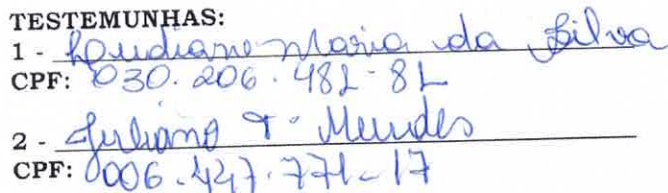 TESTEMUNHAS:
1 - Loudiane Maria da Silva
CPF: 030.206.481-81
2 - Juliano T. Mendes
CPF: 006.447.771-17